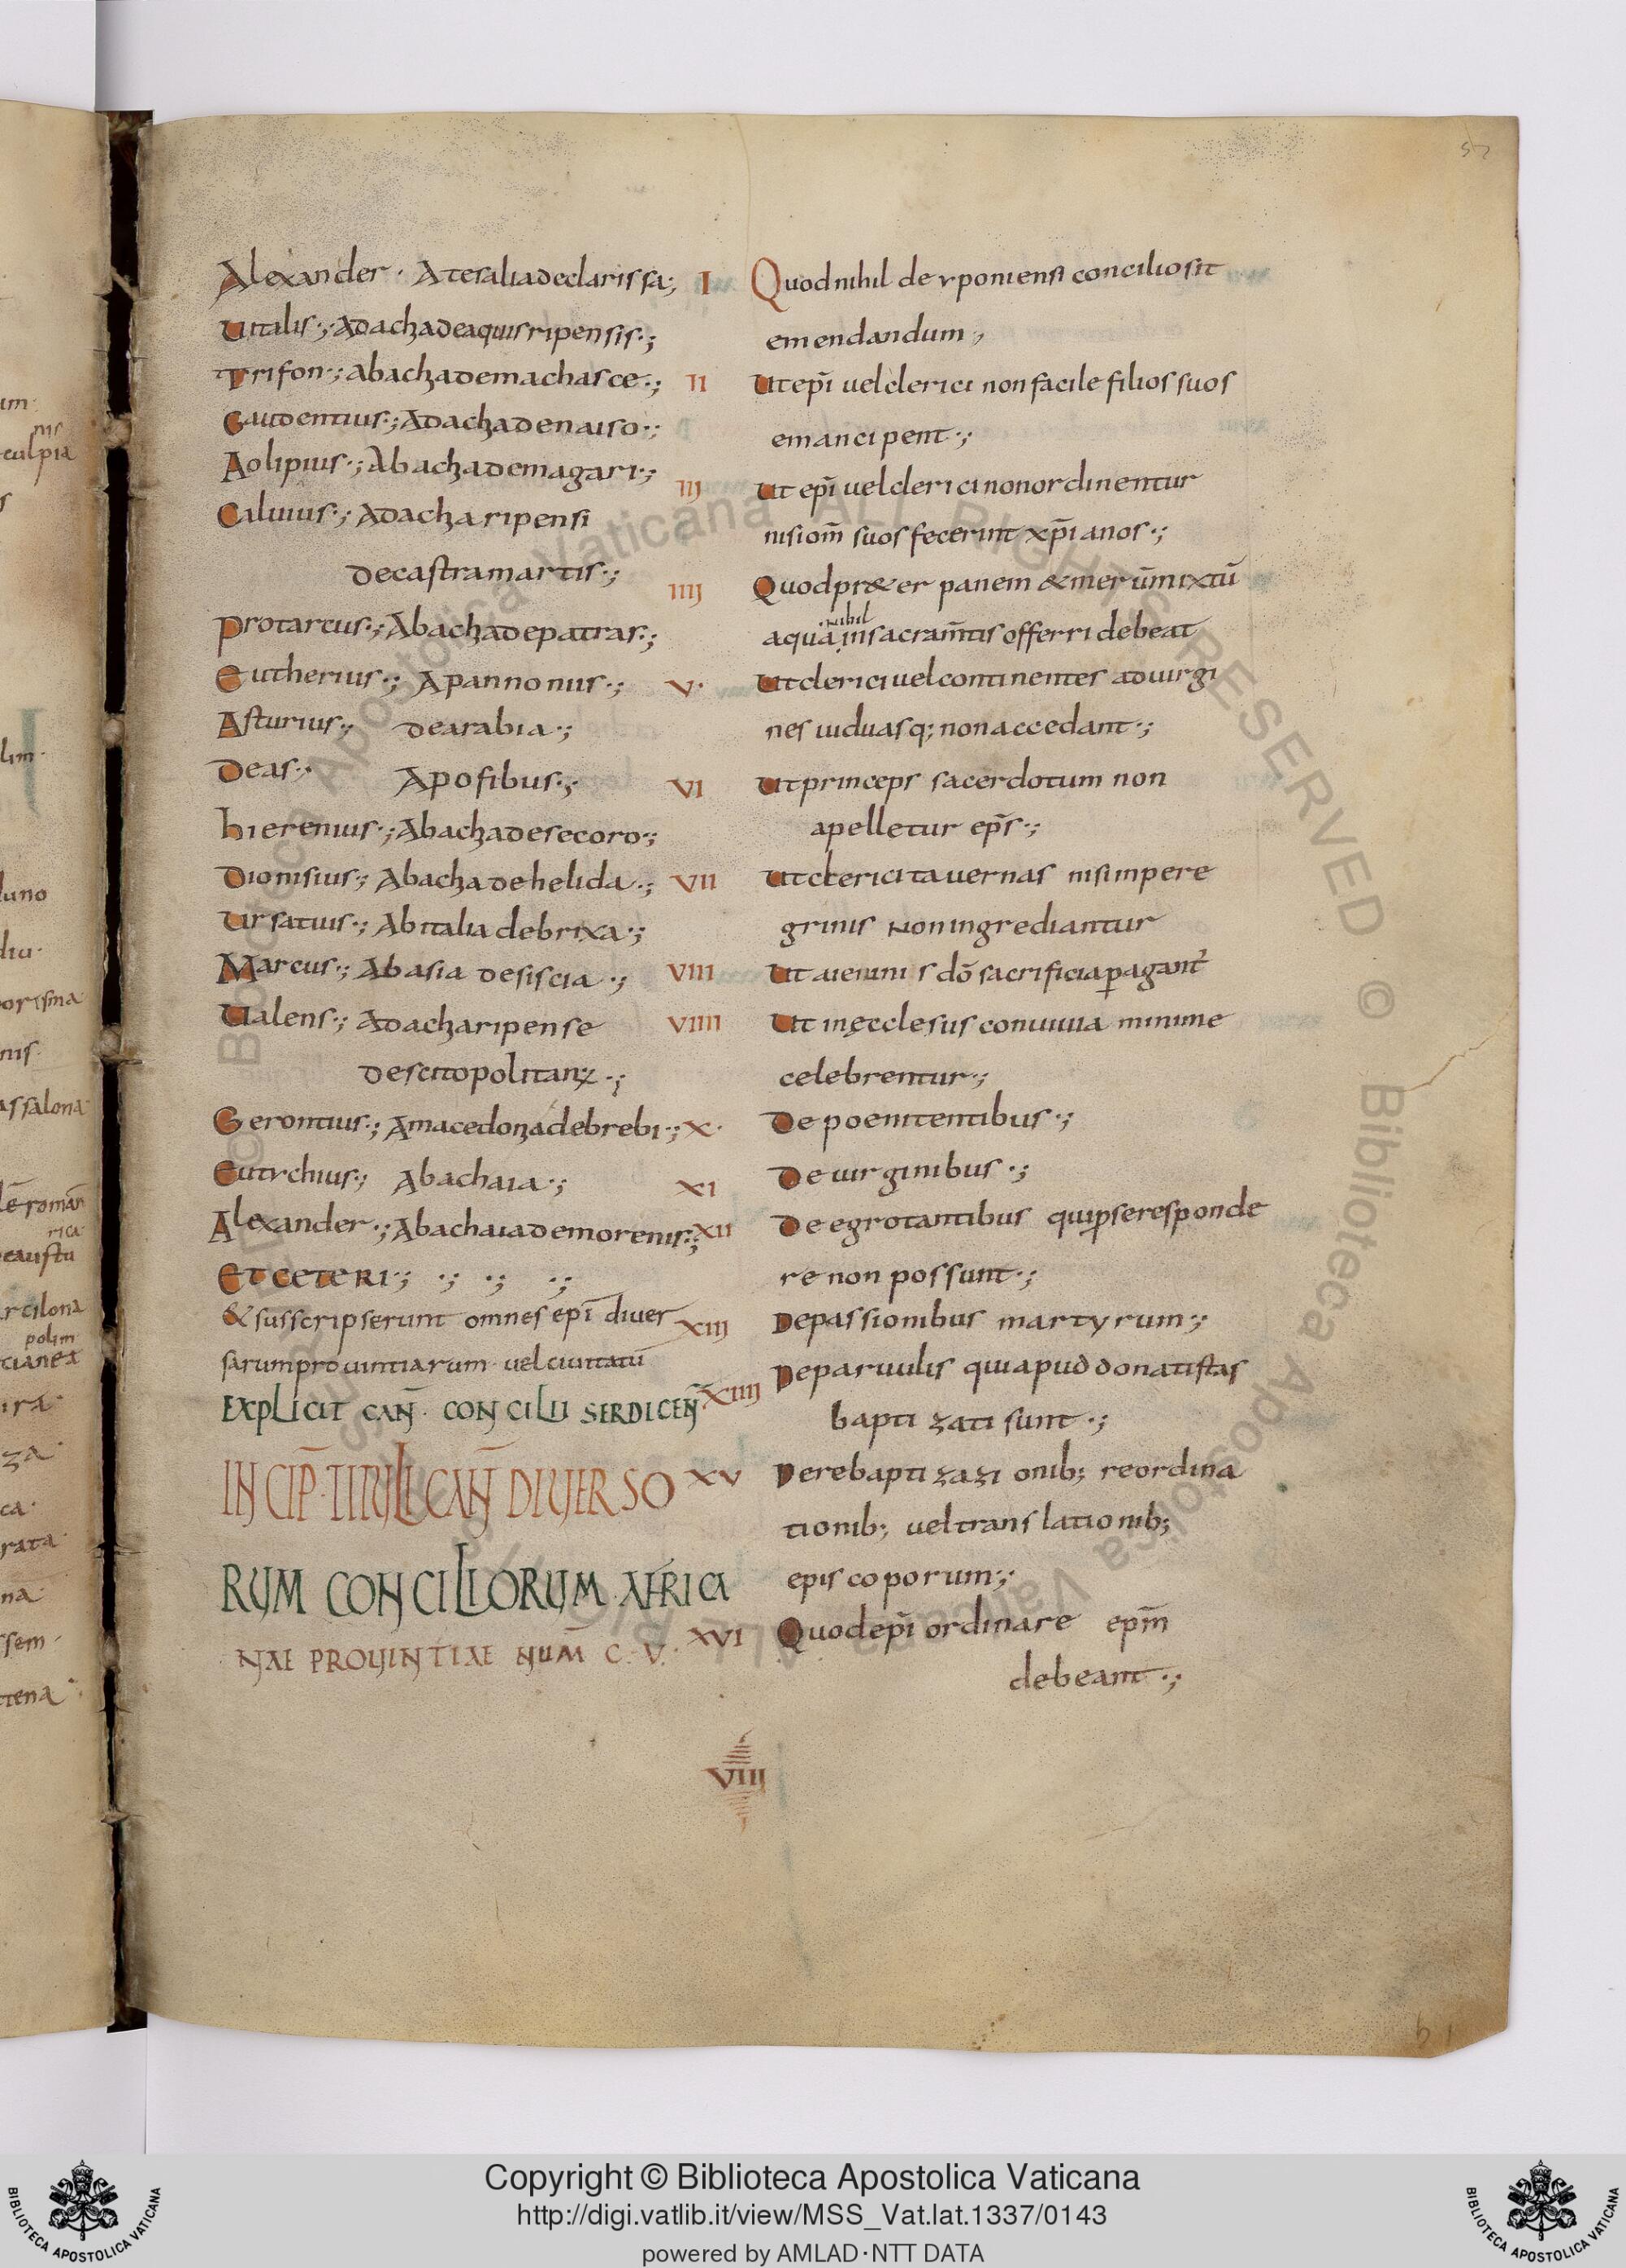 57
Alexander · Atesaliadeclarissa;
Uitalis·; Adachadeaquisripensis·;
Trifon·; abachademacharsce·;
Gaudentius·; Adachadenaiso·;
Aolipius·; Abachademagari·;
Caluius·; Adacha ripensi
decastramartis·;
Protartus·; Abachadepatras·;
Eutherius·; Apannonus·;
Asturius·; dearabia·;
Deas·. Apofibus·;
hierenius·; Abachadesecoro·;
Dionisius·; Abachadehelida·;
Ursatius·; Abitalia debrixa·;
Marcus·; Abasia desiscia·;
Ualens·; Adacharipense
descitopolitanz·;
Gerontius·; Amacedonzadebrebi·;
Eutrchius·; Abachaia·;
Alexander·; Abachaiademorenis·;
ET CETERI·; ·; ·; ·;
& susscripserunt omnes epi̅ diuer
sarumprouintiarum uelciuitatu̅
EXPLICIT CAN̅ · CONCILII SERDICEN̅
INCIP̅ · TITULI CAN̅ DIUERSO
RUM CONCILIORUM AFRICA
NAE PROUINTIAE NUM̅ C · V ·
I Quodnihil de yponiensi conciliosit
emendandum,
II Utepi̅ uelclerici nonfacile filios suos
emancipent·;
III Ut epi̅ uelclericinonordinentur
nisiom̅ suos fecerint xp̅ianos·;
IIII Quodpr&er panem &meru̅mixtu̅
nihil
aqua insacram̅tis offerri debeat
V· Utclericiuelcontinentes aduirgi
nes uiduasq; nonaccedant·;
VI Utprinceps sacerdotum non
apelletur ep̅s·;
VII Utclericitauernas nisiinpere
grinis Noningrediantur
VIII Ut aieiuni s do̅ sacrificiap̲agant᷑
VIIII Ut inęcclesiis conuiuia minime
celebrentur·;
X· De poenitentibus·;
XI De uirginibus·;
XII De egrotantibus quip̲seresponde
re non possunt·;
XIII Depassionibus martyrum·;
XIIII Deparuulis quiapud donatistas
bapti zati sunt·;
XV Derebapti zazi onib; reordina
tionib; ueltrans lationib;
epis coporum·;
XVI Quodepi̅ ordinare epm̅
debeant·;
VIII
Copyright © Biblioteca Apostolica Vaticana
http://digi.vatlib.it/view/MSS_Vat.lat.1337/0143
powered by AMLAD·NTT DATA
BIBLIOTECA APOSTOLICA VATICANA
BIBLIOTECA APOSTOLICA VATICANA